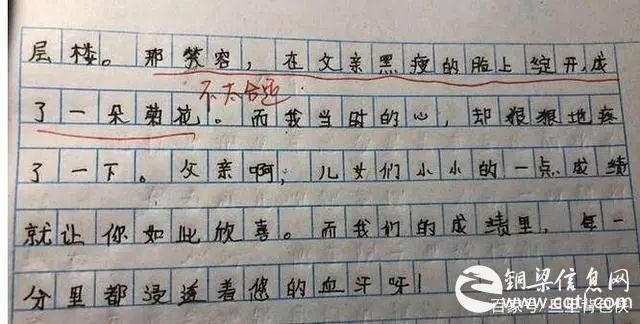 层楼。那笑容，在父亲黑瘦的脸上绽开成
不太合适
了一朵菊花。而我当时的心，却狠狠地疼
了一下。父亲啊，儿女们小小的一点成绩
就让你如此欣喜。而我们的成绩里，每一
分里都浸透着您的血汗呀！
铜梁信息网
www.cqtl.com